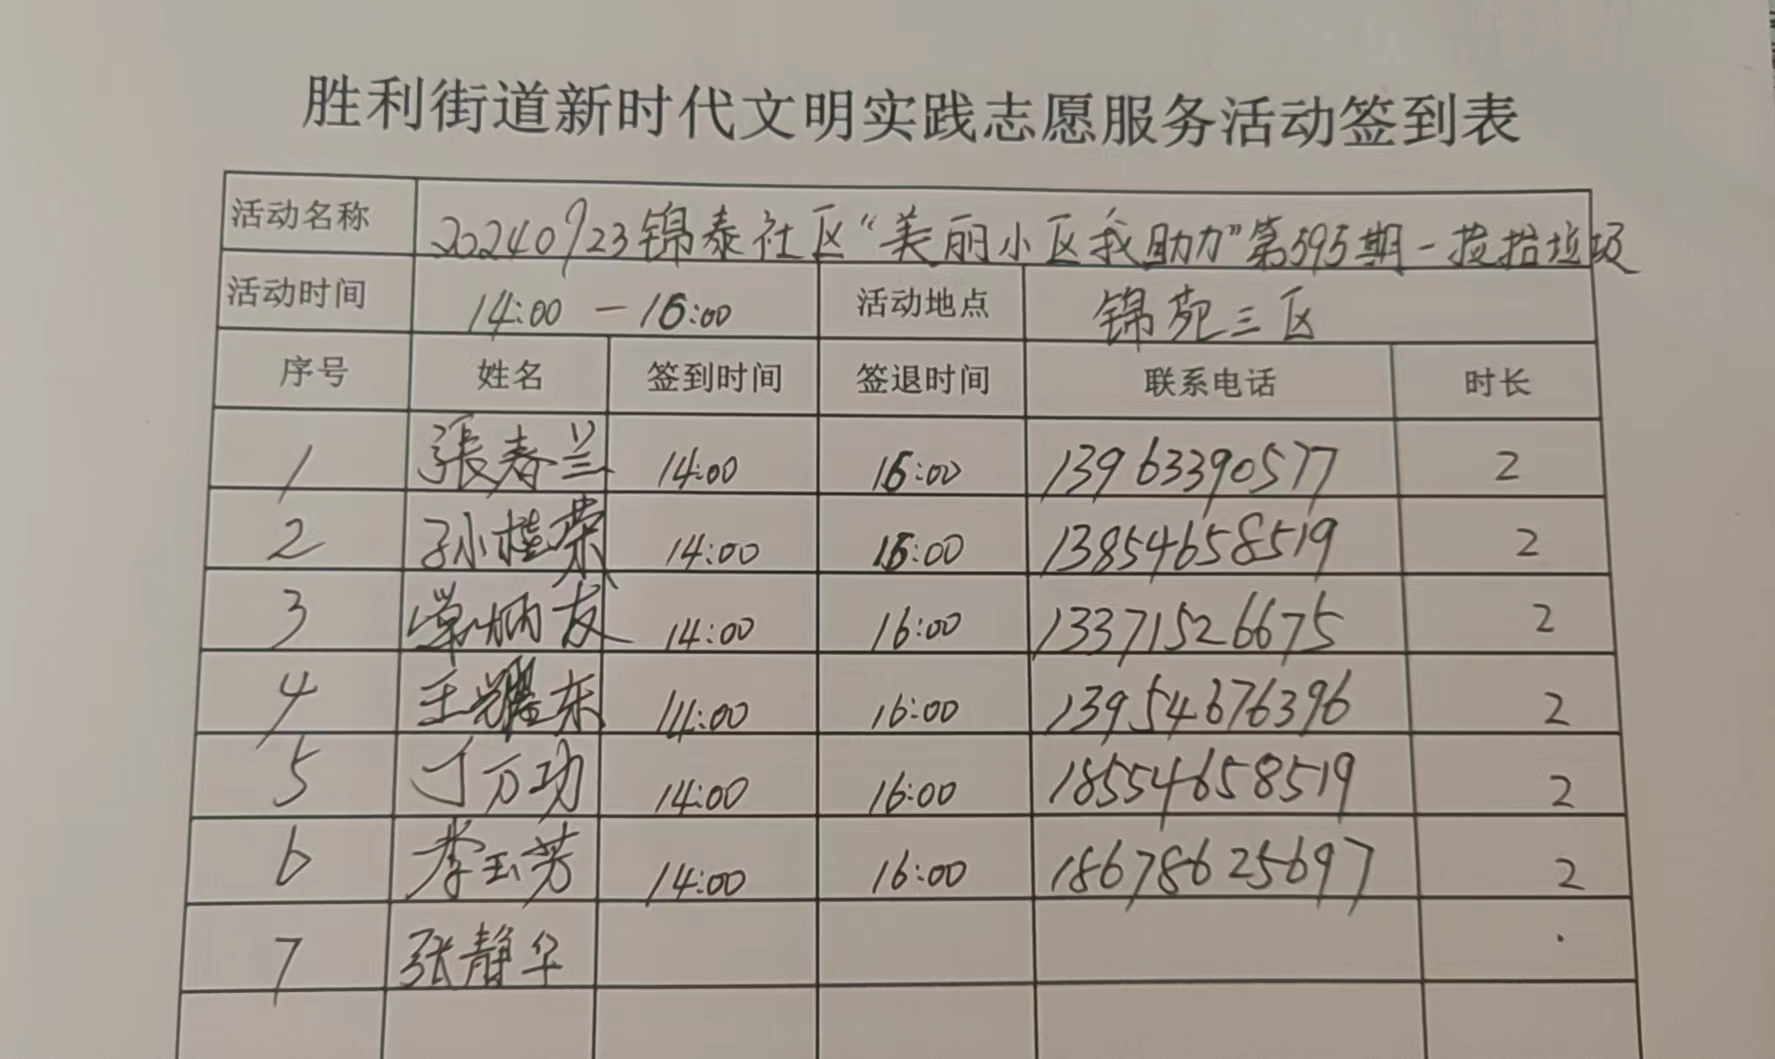 胜利街道新时代文明实践志愿服务活动签到表
活动名称 20240923锦泰社区“美丽小区我助力”第595期-捡拾垃圾
活动时间 14:00 - 16:00 活动地点 锦苑三区
序号 姓名 签到时间 签退时间 联系电话 时长
1 張春兰 14:00 16:00 13963390577 2
2 孙桂荣 14:00 16:00 13854658519 2
3 炳友 14:00 16:00 13371526675 2
4 王耀东 14:00 16:00 13954676396 2
5 丁万功 14:00 16:00 18554658519 2
6 李玉芳 14:00 16:00 18678625697 2
7 张静华